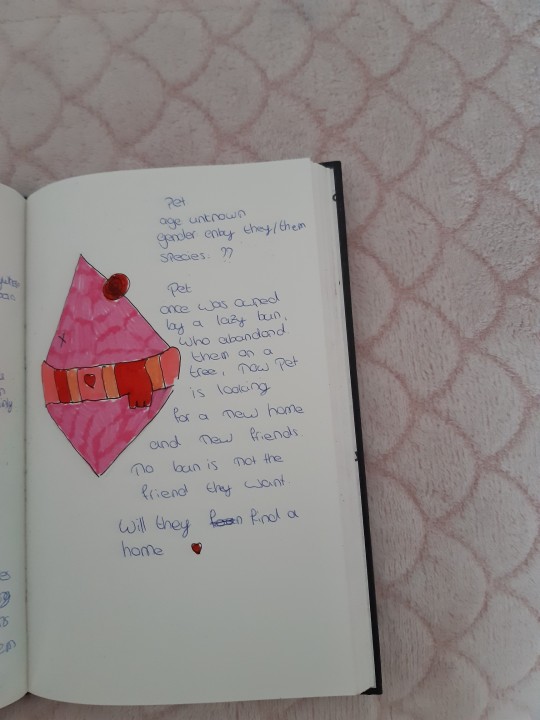 Pet
age unknown
gender enby they/them
species: ??
Pet
once was owned
by a lazy bun,
who abandond
them on a
tree, now Pet
is looking
for a new home
and new friends.
No bun is not the
friend they want.
Will they find a
home